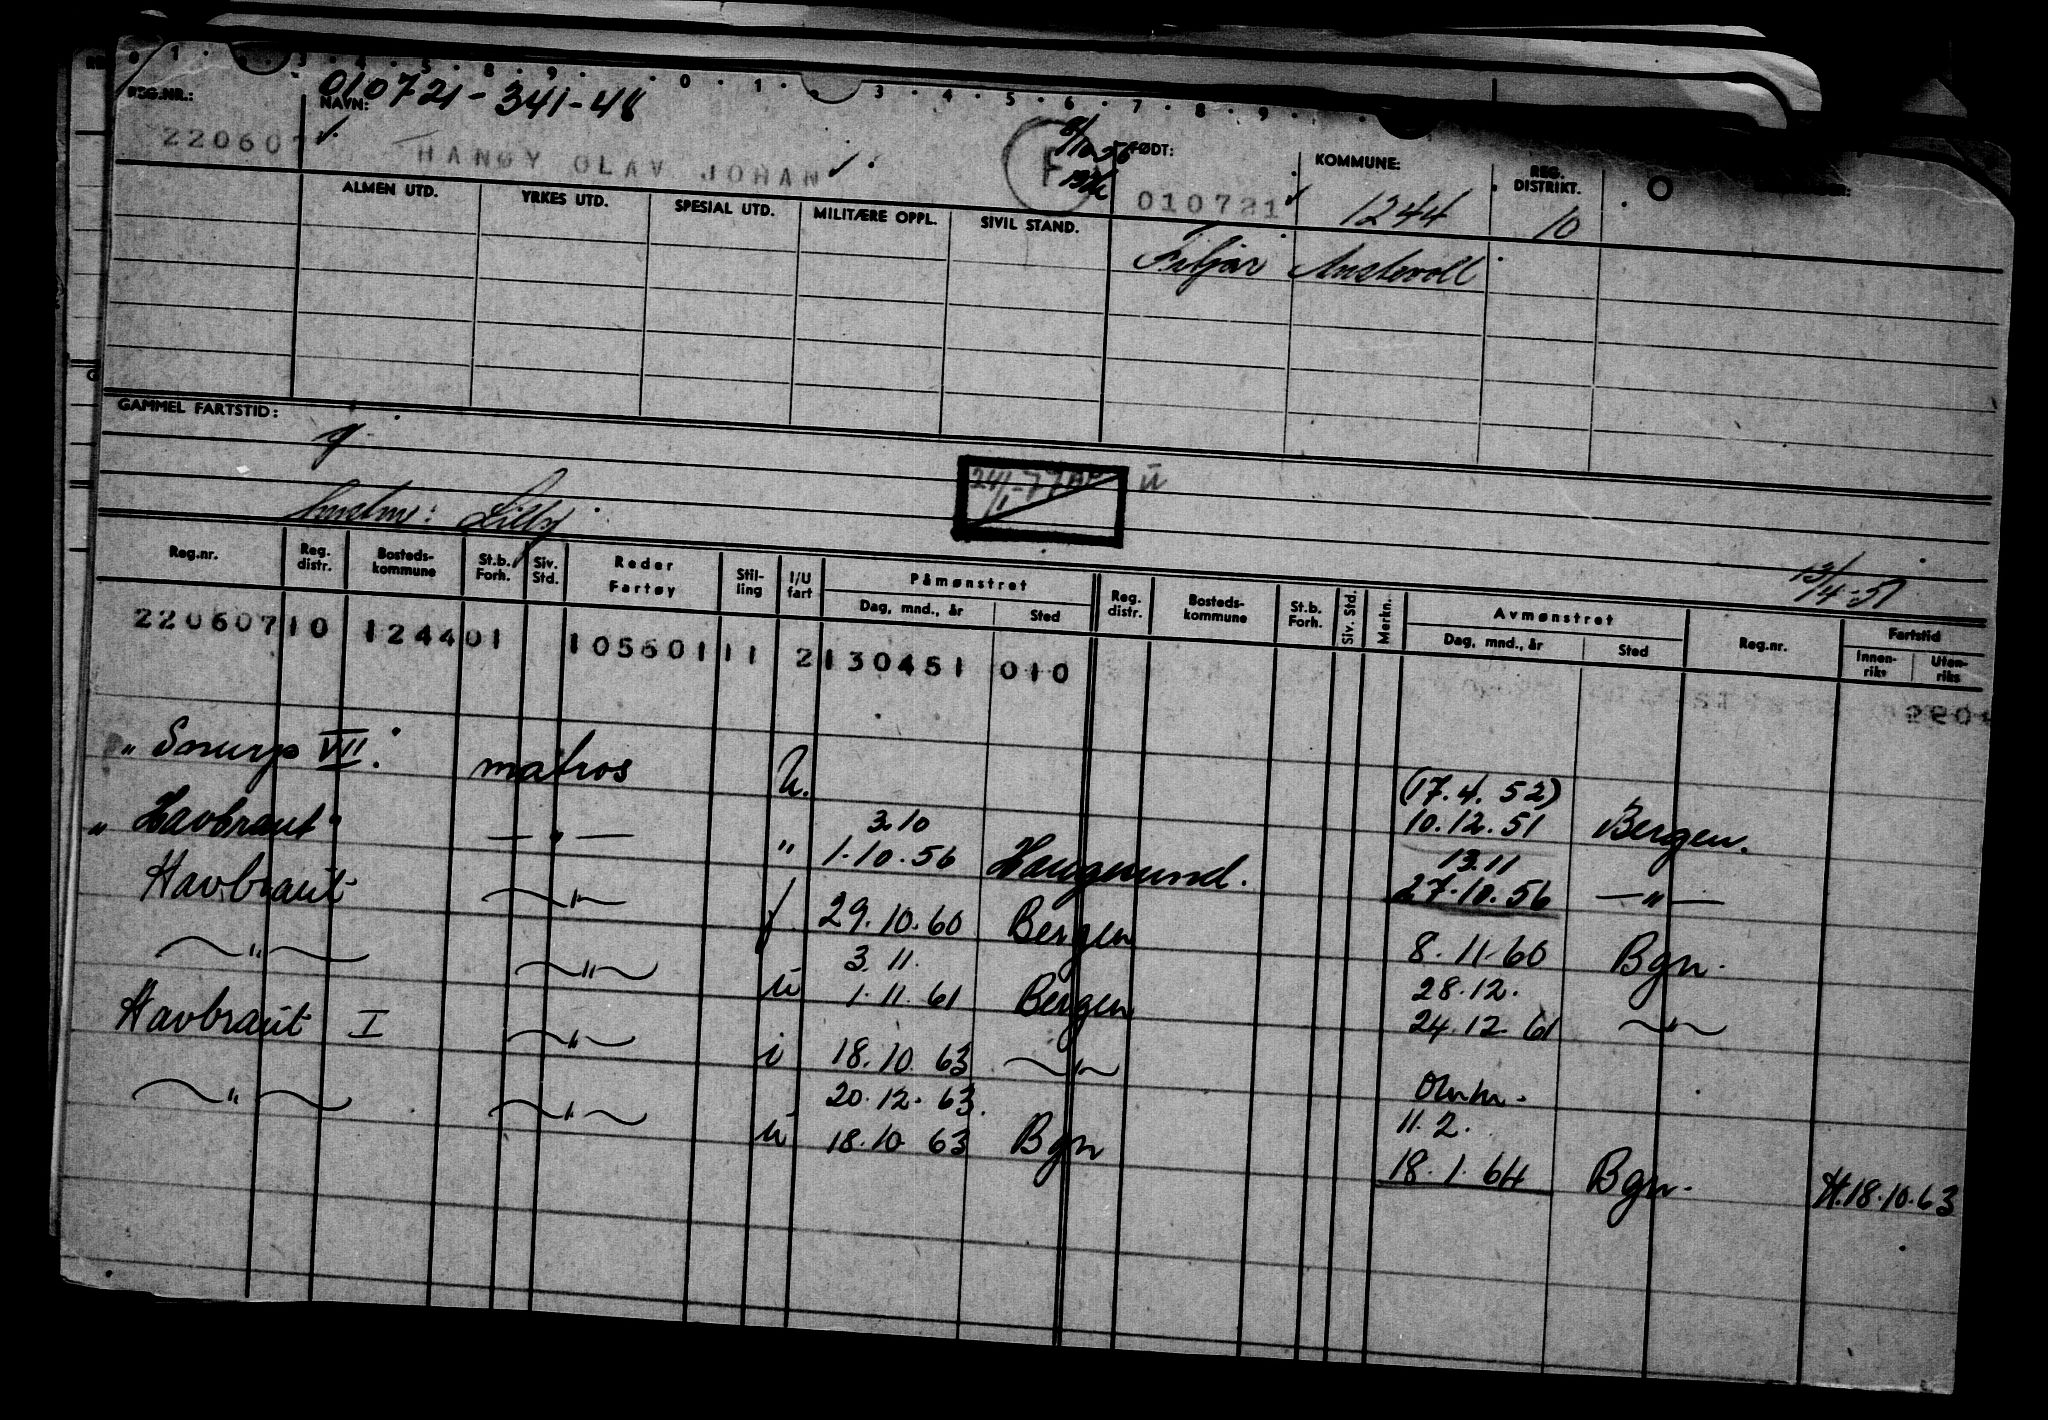 010721-341-48
REG.NR.: NAVN: FØDT: KOMMUNE: REG. DISTRIKT.
220607 HANØY OLAV JOHAN F 010721 1244 10
ALMEN UTD. YRKES UTD. SPESIAL UTD. MILITÆRE OPPL. SIVIL STAND.
Fitjar Austevoll
GAMMEL FARTSTID:
24/1-77 ü
hustru: Lilly
13/4-51
Reg.nr. Reg. distr. Bosteds-kommune St.b. Forh. Siv. Std. Reder Fartøy Stil-ling I/U fart Påmønstret Reg. distr. Bosteds-kommune St.b. Forh. Siv. Std. Merkn. Avmønstret Reg.nr. Fartstid
Dag, mnd., år Sted Dag, mnd., år Sted Innen-riks Uten-riks
220607 10 1244 01 105601 11 2 130451 010
VII. matros U. (17.4.52)
10.12.51 Bergen.
"Havbraut" — " — " 3.10 13.11
1.10.56 Haugesund. 27.10.56 — " —
Havbraut — " — f 29.10.60 Bergen 8.11.60 Bgn.
— " — — " — ü 3.11. 28.12.
1.11.61 Bergen 24.12.61 — " —
Havbraut I — " — i 18.10.63 — " —
— " — — " — ü 20.12.63. 11.2.
18.10.63 Bgn 18.1.64 Bgn. H.18.10.63